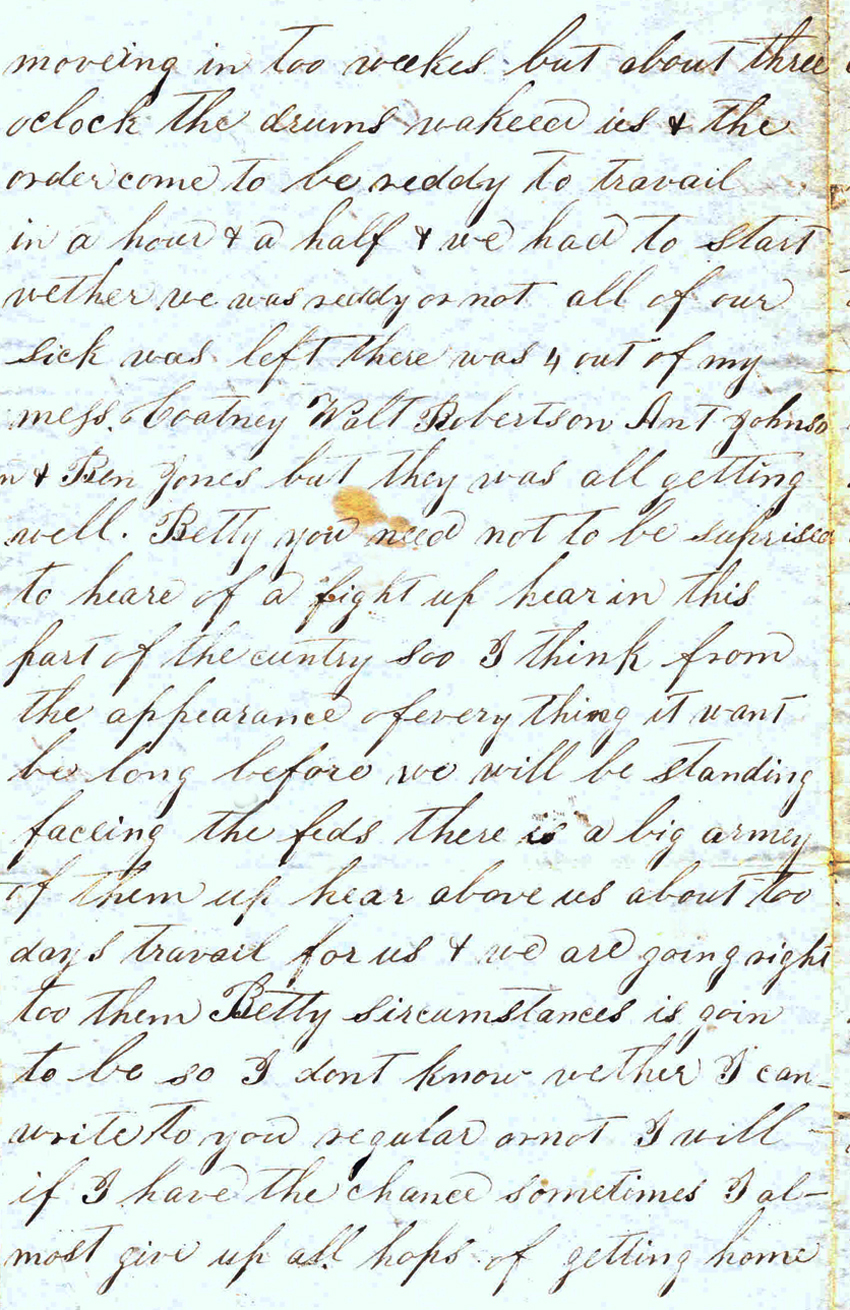 moveing in too weekes but about three
oclock the drums wakeed us & the
order come to be reddy to travail
in a hour & a half & we had to start
wether we was reddy or not all of our
sick was left there was 4 out of my
mess. Coatney Walt Robertson Ant Johnso
n & Ben Jones but they was all getting
well. Betty you need not to be suprised
to heare of a fight up hear in this
part of the cuntry soo I think from
the appearance of every thing it want
be long before we will be standing
faceing the feds there is a big armey
of them up hear above us about too
days travail for us & we are going right
too them Betty sircumstances is goin
to be so I dont know wether I can
write to you regular or not I will
if I have the chance sometimes I al-
most give up all hops of getting home